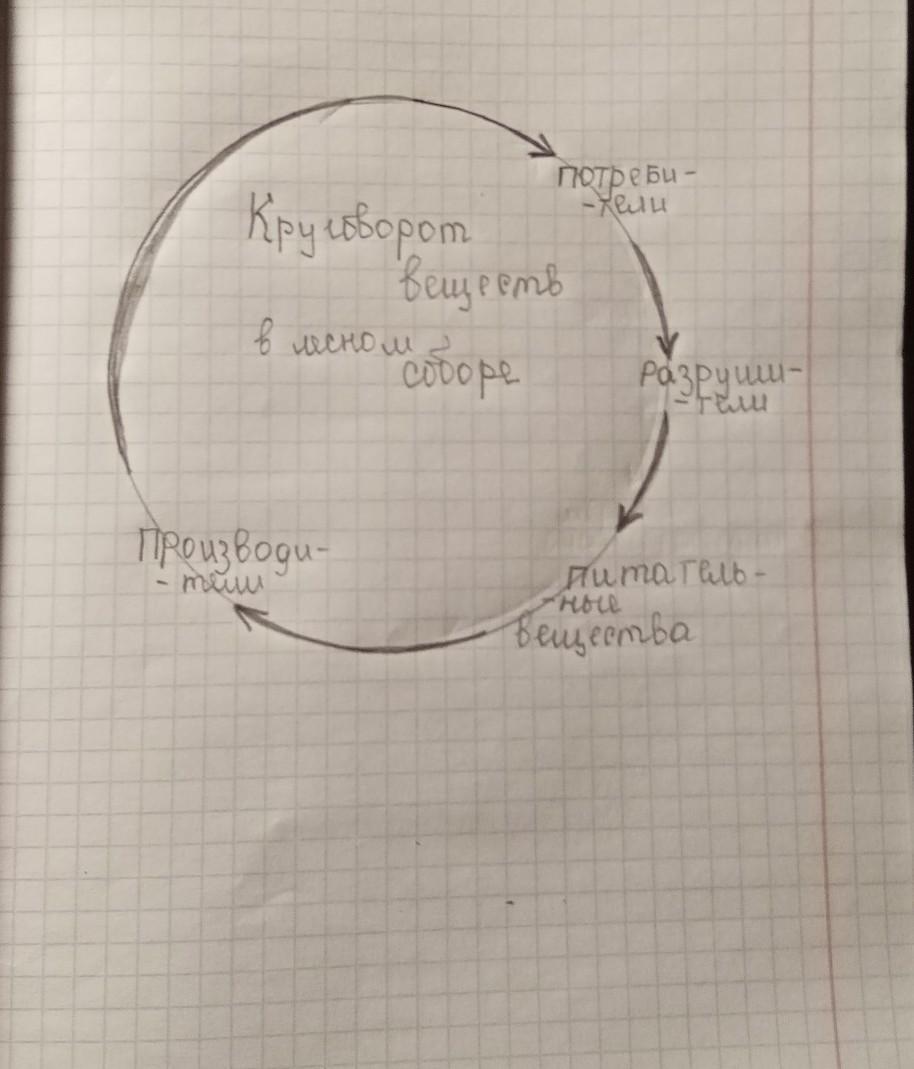 Круговорот
веществ
в лесном
соборе
потреби-
-тели
разруши-
-тели
питатель-
-ные
вещества
Производи-
-тели